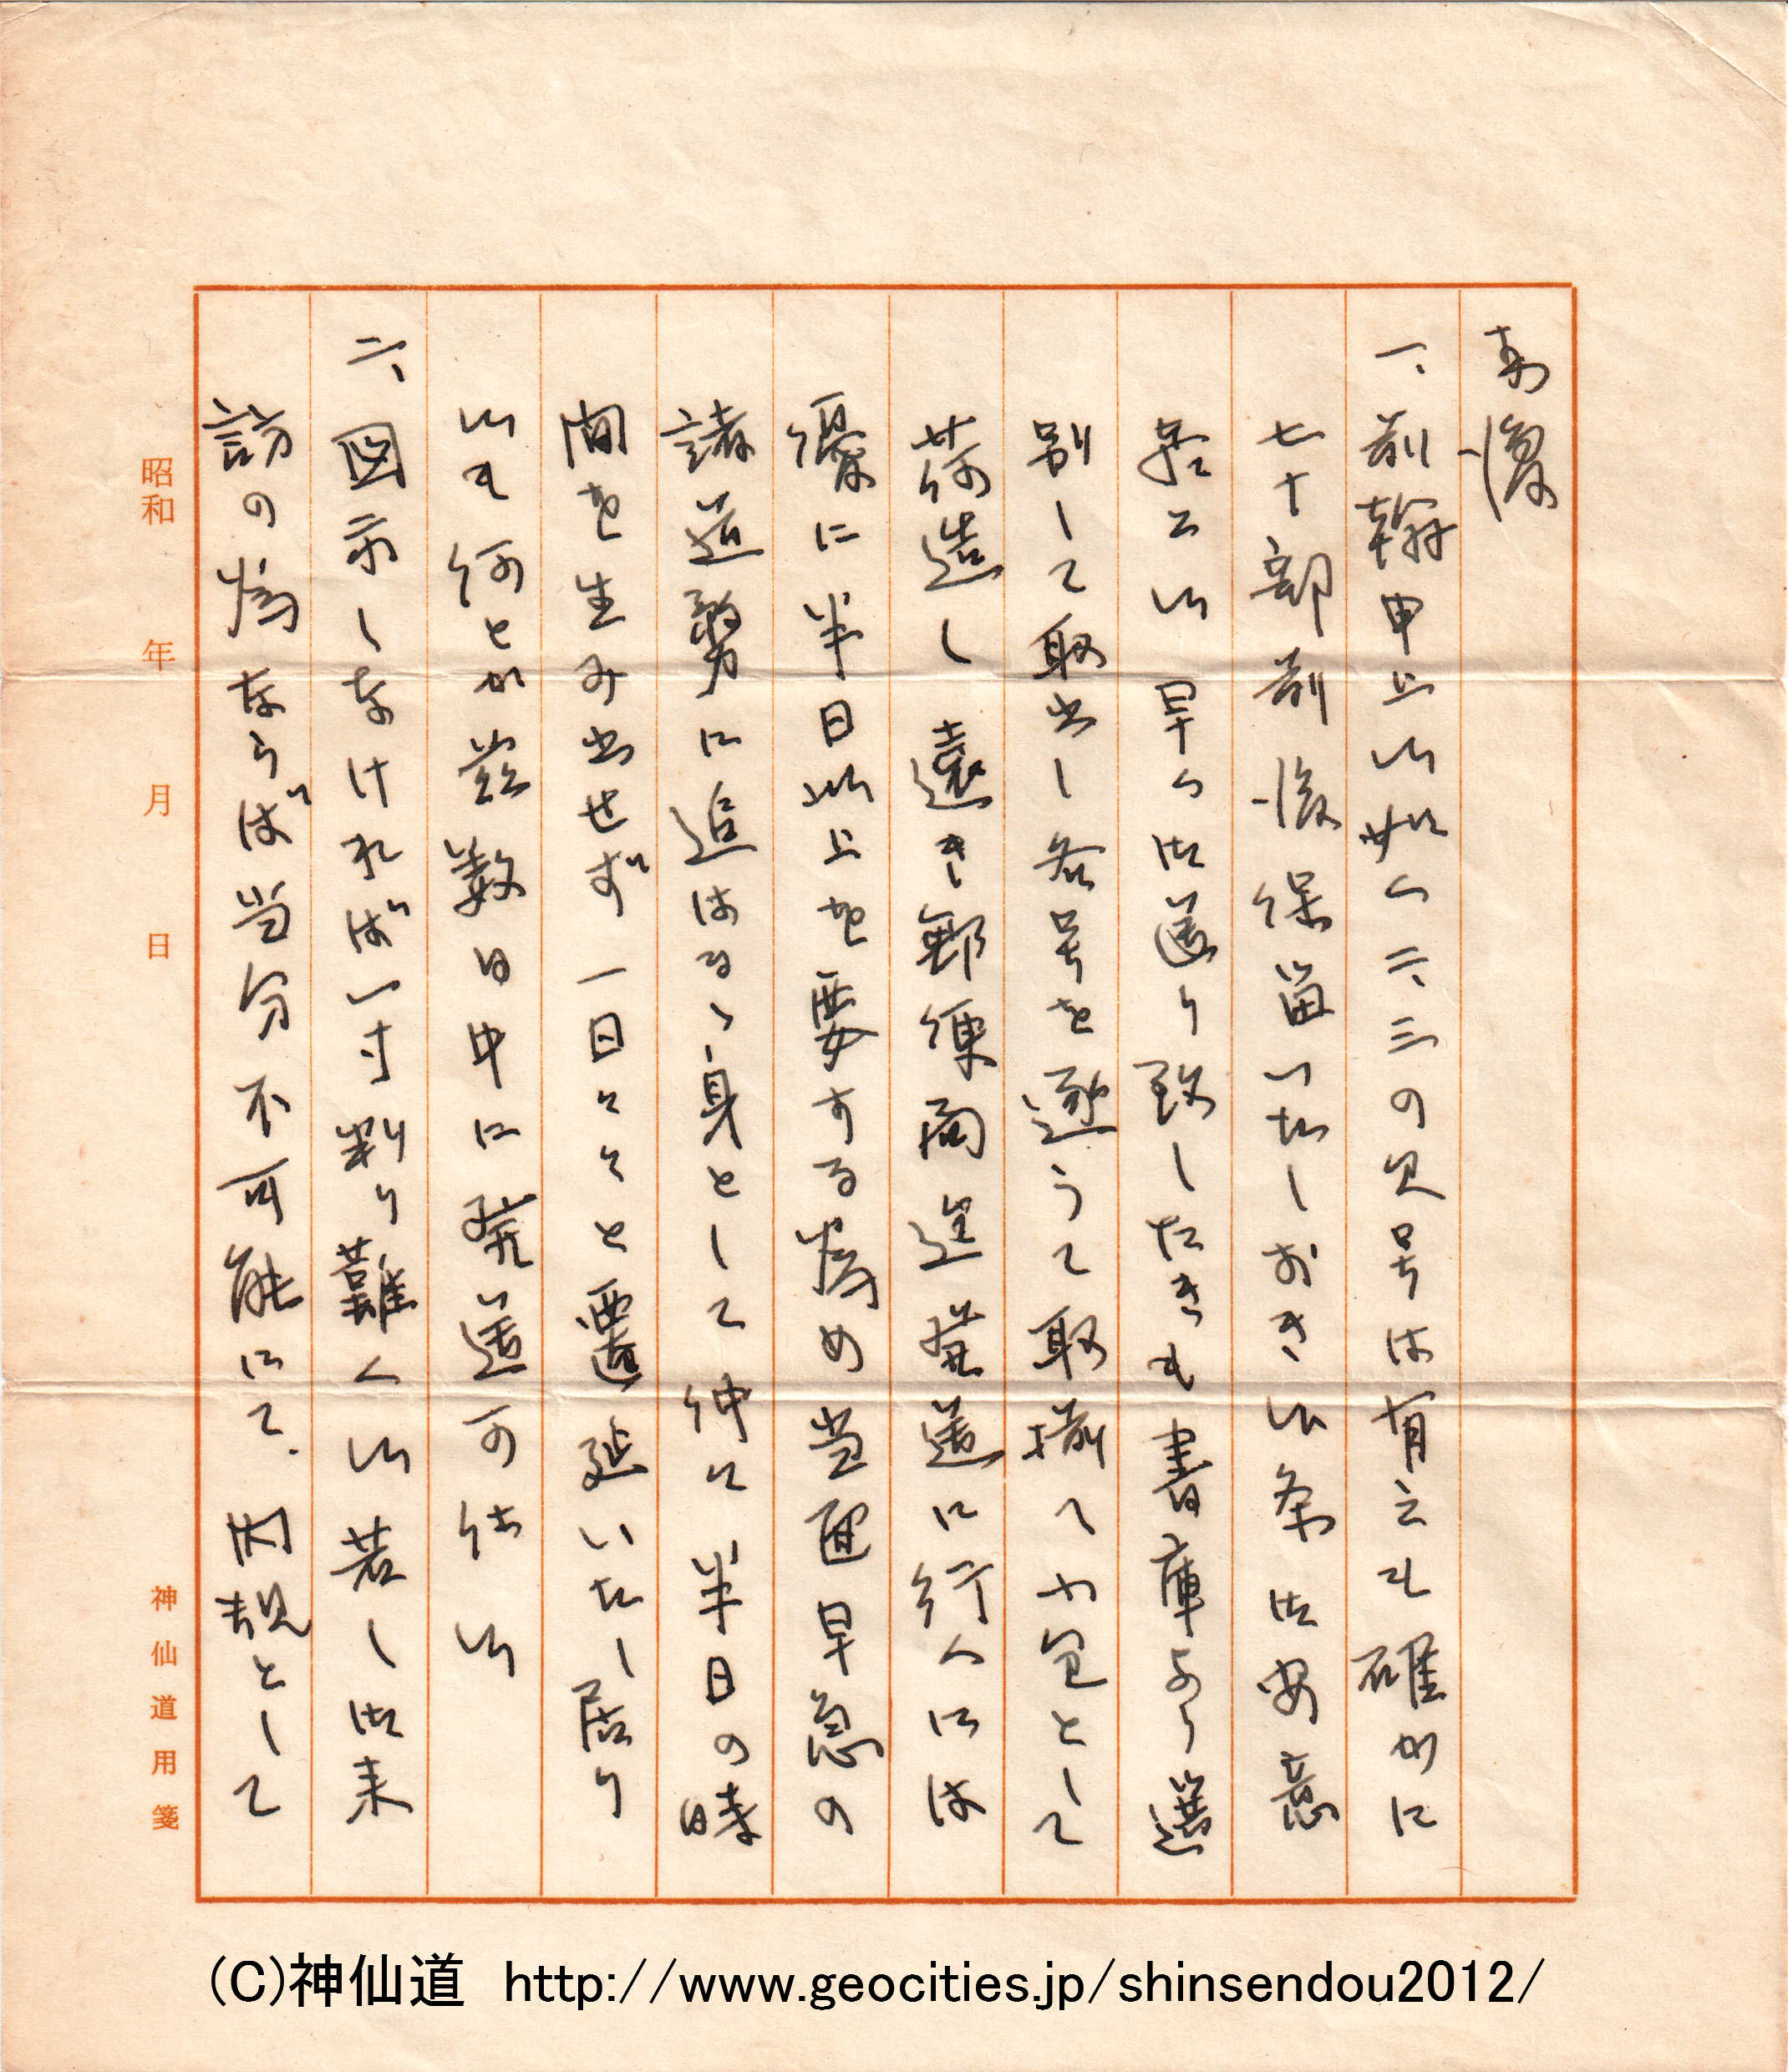 拝復
一、前翰申上候如く二、三の欠号は有之も確かに
七十部前後保留いたしおき候条御安意
早く御送り致したきも書庫より選
別して取出し各号を逐うて取揃へ小包として
荷造し遠き郵便局迄発送に行くには
優に半日以上を要する為め当面早急の
諸道務に追はるゝ身として仲に半日の時
間を生み出せず一日々々と遷延いたし居り
候も何とか茲数日中に発送可仕候
二、図示しなければ一寸判り難く候若し御来
訪の為ならば当分不可能にて、内規として
昭和 年 月 日
神仙道用箋
(C)神仙道 http://www.geocities.jp/shinsendou2012/